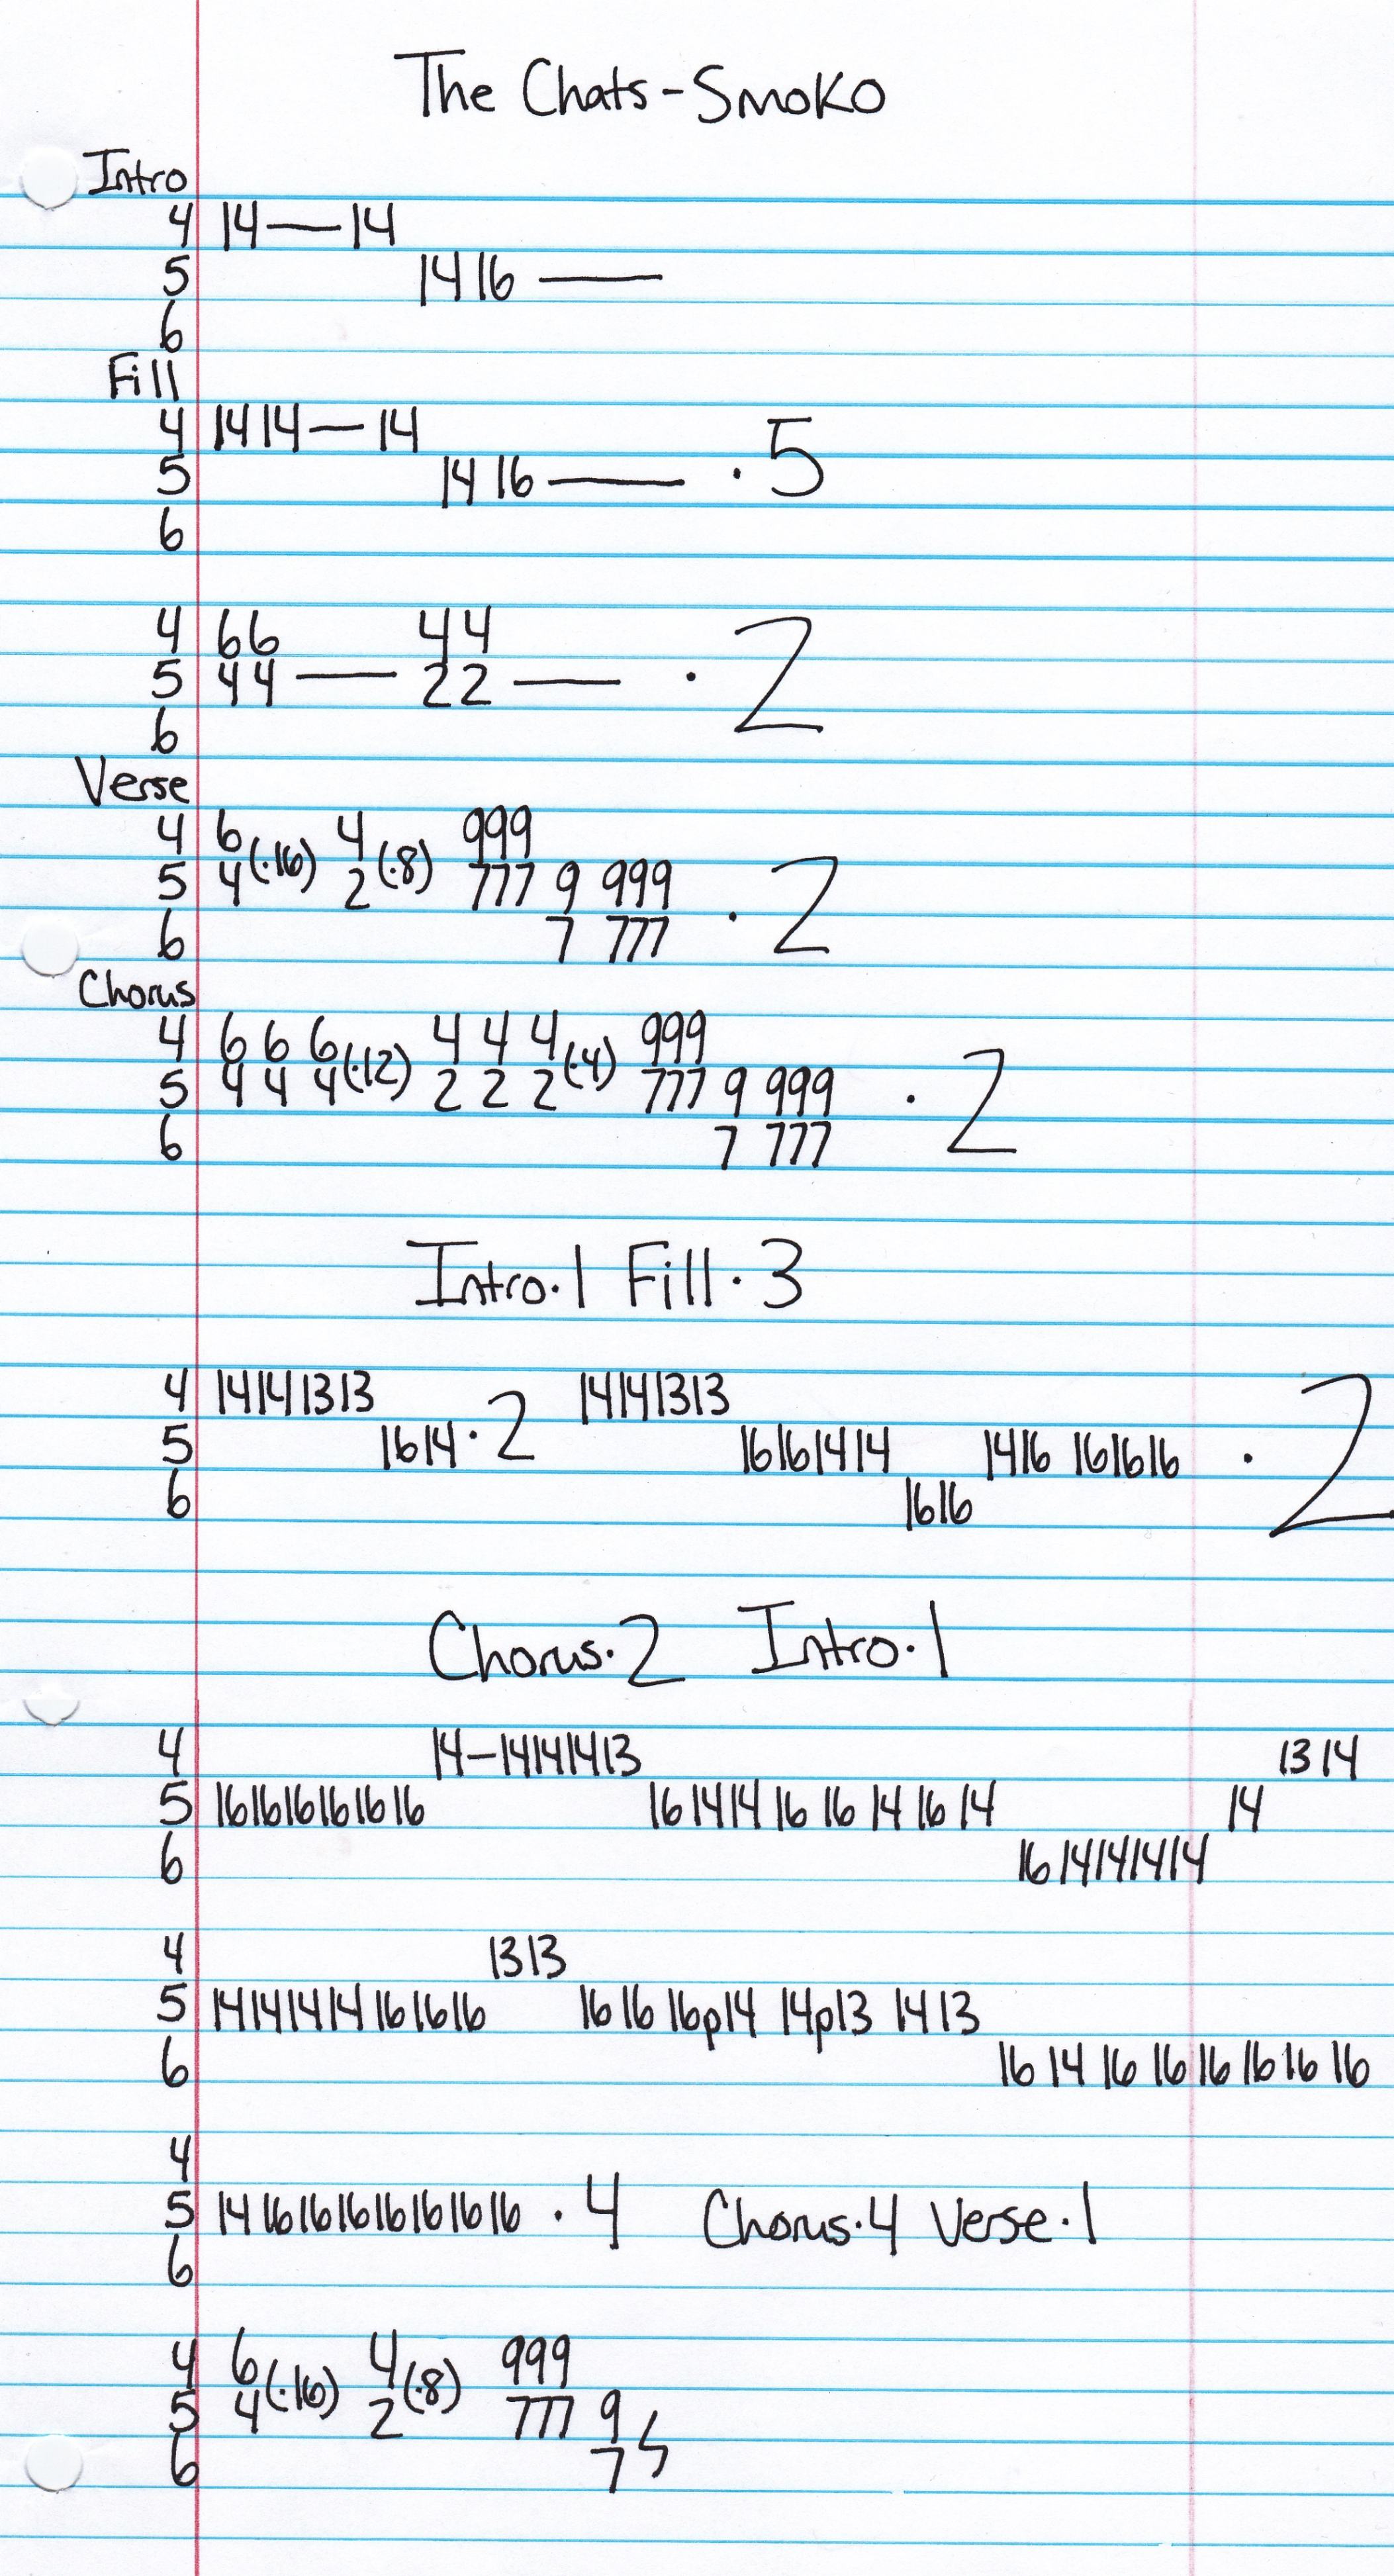 The Chats - Smoko
Intro
4 14—14
5 14 16 —
6
Fill
4 14 14—14
5 14 16 — · 5
6
4 66 44
5 44 — 22 — · 2
6
Verse
4 6 4 999
5 4 (·16) 2 (·8) 777 9 999 · 2
6 7 777
Chorus
4 6 6 6 4 4 4 999
5 4 4 4 (·12) 2 2 2 (·4) 777 9 999 · 2
6 7 777
Intro·1 Fill·3
4 14141313 14141313
5 1614·2 16161414 1416 161616 · 2
6 1616
Chorus·2 Intro·1
4 14–14141413 13 14
5 161616161616 16 1414 16 16 14 16 14 14
6 16 14141414
4 1313
5 14141414 161616 16 16 16p14 14p13 14 13
6 16 14 16 16 16 16 16 16
4
5 14 16161616161616 · 4 Chorus·4 Verse·1
6
4 6 4 999
5 4 (·16) 2 (·8) 777 9
6 7